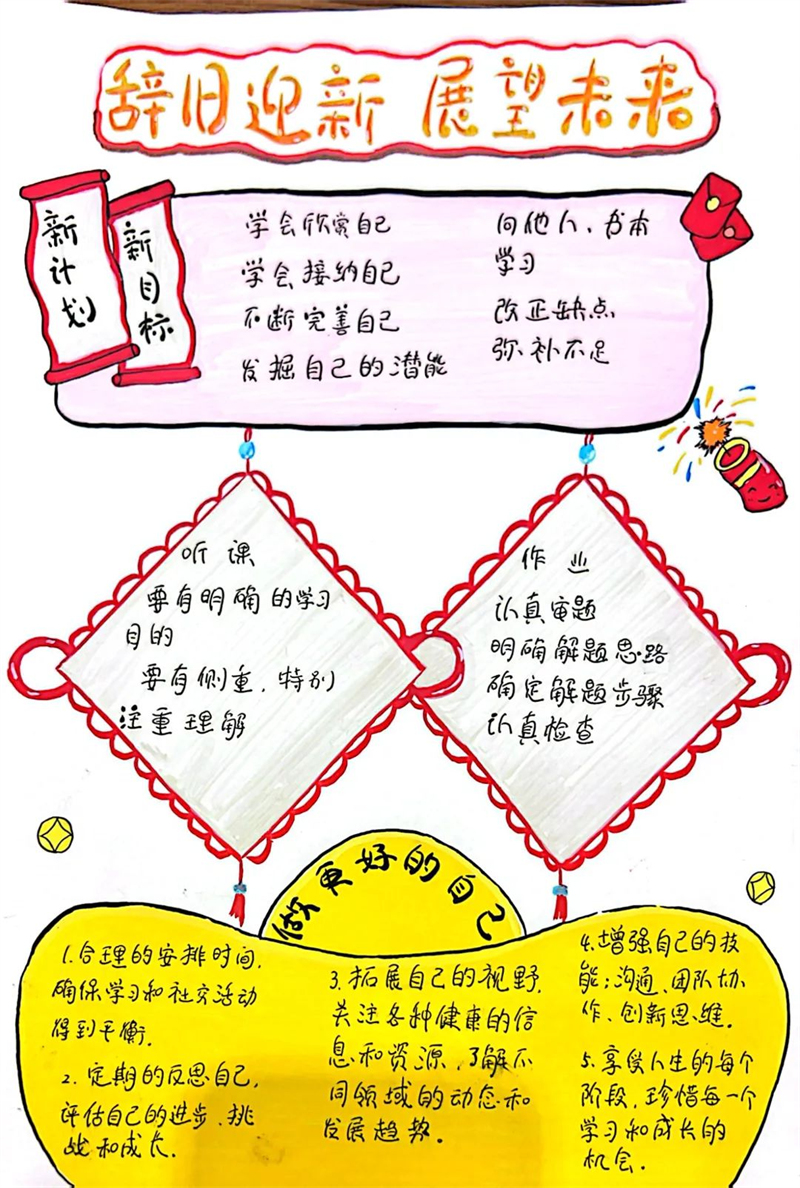 辞旧迎新 展望未来
新计划
新目标
学会欣赏自己
学会接纳自己
不断完善自己
发掘自己的潜能
向他人、书本
学习
改正缺点
弥补不足
听课
要有明确的学习
目的
要有侧重,特别
注重理解
作业
认真审题
明确解题思路
确定解题步骤
认真检查
做更好的自己
1.合理的安排时间,
确保学习和社交活动
得到平衡.
2.定期的反思自己,
评估自己的进步、挑
战和成长.
3.拓展自己的视野,
关注各种健康的信
息和资源,了解不
同领域的动态和
发展趋势。
4.增强自己的技
能;沟通、团队协
作、创新思维.
5.享受人生的每个
阶段,珍惜每一个
学习和成长的
机会.